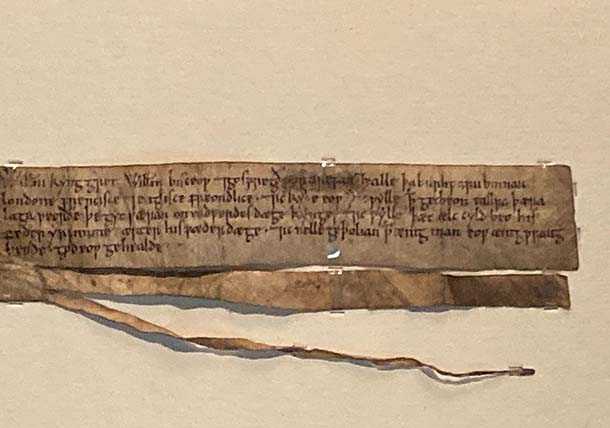 Willm kyng gret Willm bisceop ⁊ gosfregð portirefan ⁊ ealle þa burhwaru binnan
londone frencisce ⁊ englisce freondlice ⁊ ic kyðe eow ꝥ ic wylle ꝥ get beon eallra þæra
laga weorðe þe gyt wæran on eadwerdes dæge kynges ⁊ ic wylle þæt ælc cyld beo his
fæder yrfnume æfter his fæder dæge ⁊ ic nelle geþolian ꝥ ænig man eow ænig wrang
beode god eow gehealde